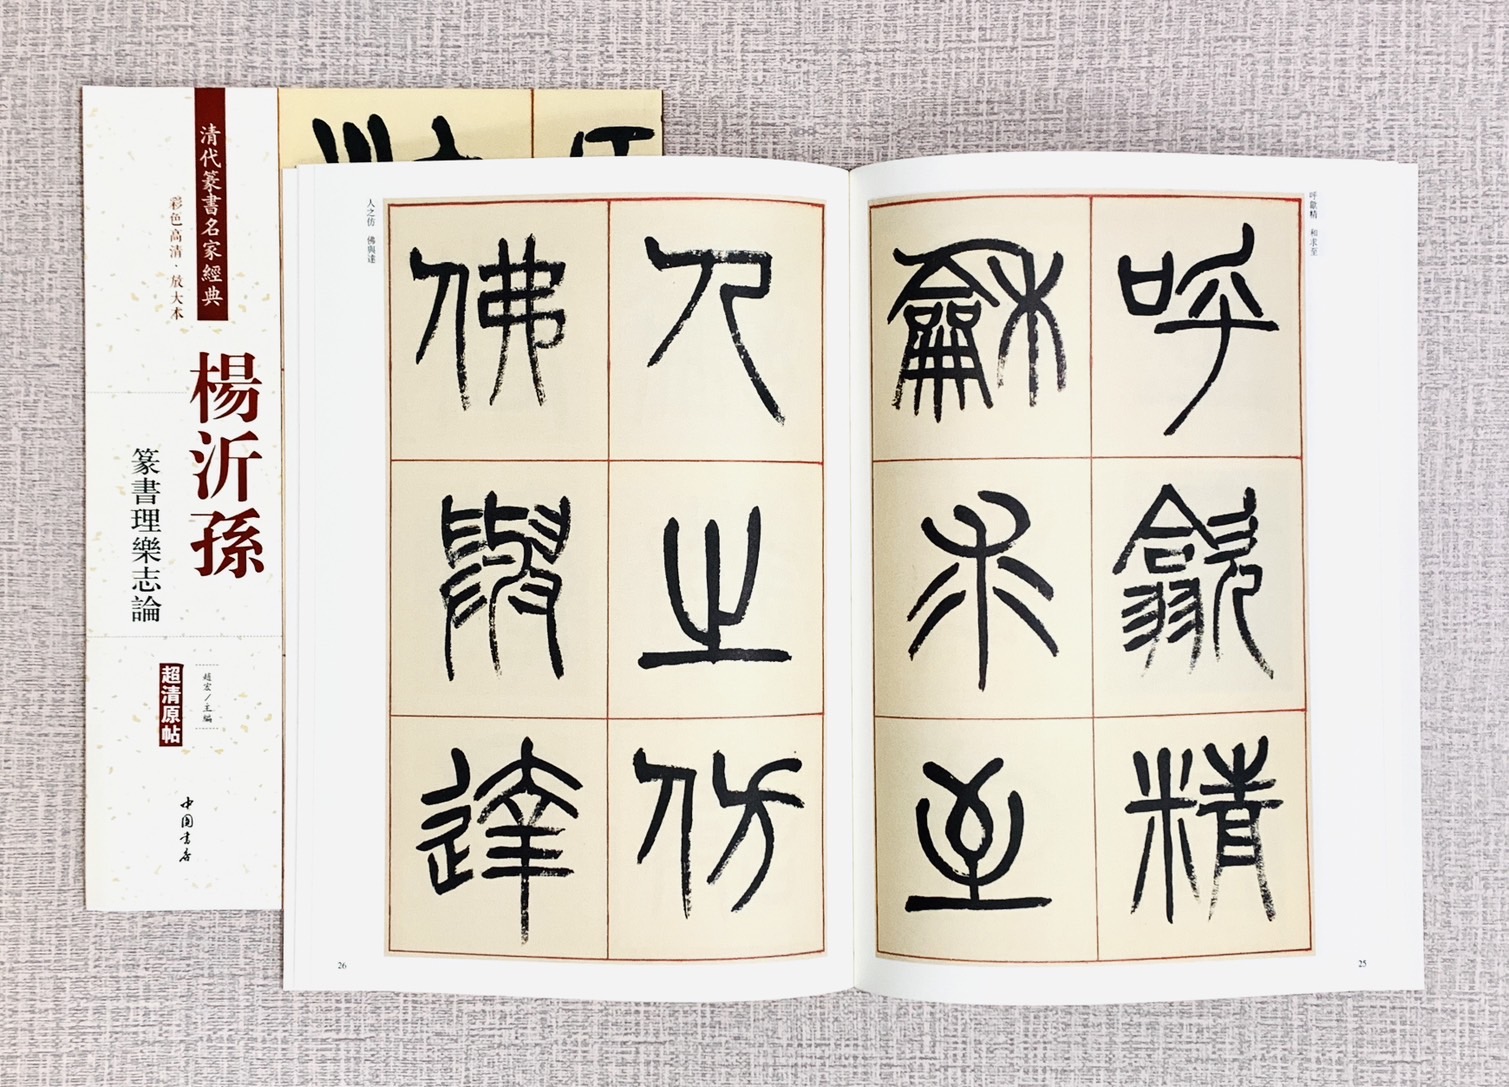 清代篆書名家經典
彩色高清·放大本
楊沂孫
篆書理樂志論
超清原帖
趙宏／主編
中國書店
呼歙精 和求至
呼歙精
龢求至
25
人之仿
佛與達
人之仿 佛與達
26